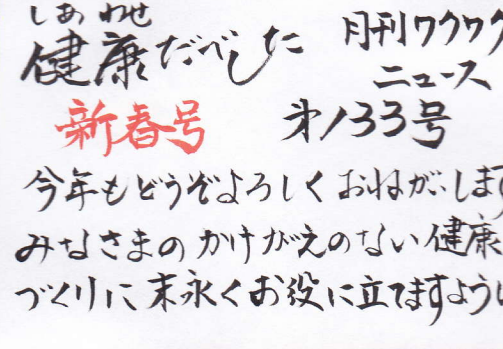 しあわせ
健康だべした
月刊ワクワク
ニュース
新春号
第133号
今年もどうぞよろしくおねがいします
みなさまのかけがえのない健康
づくりに末永くお役に立てますように